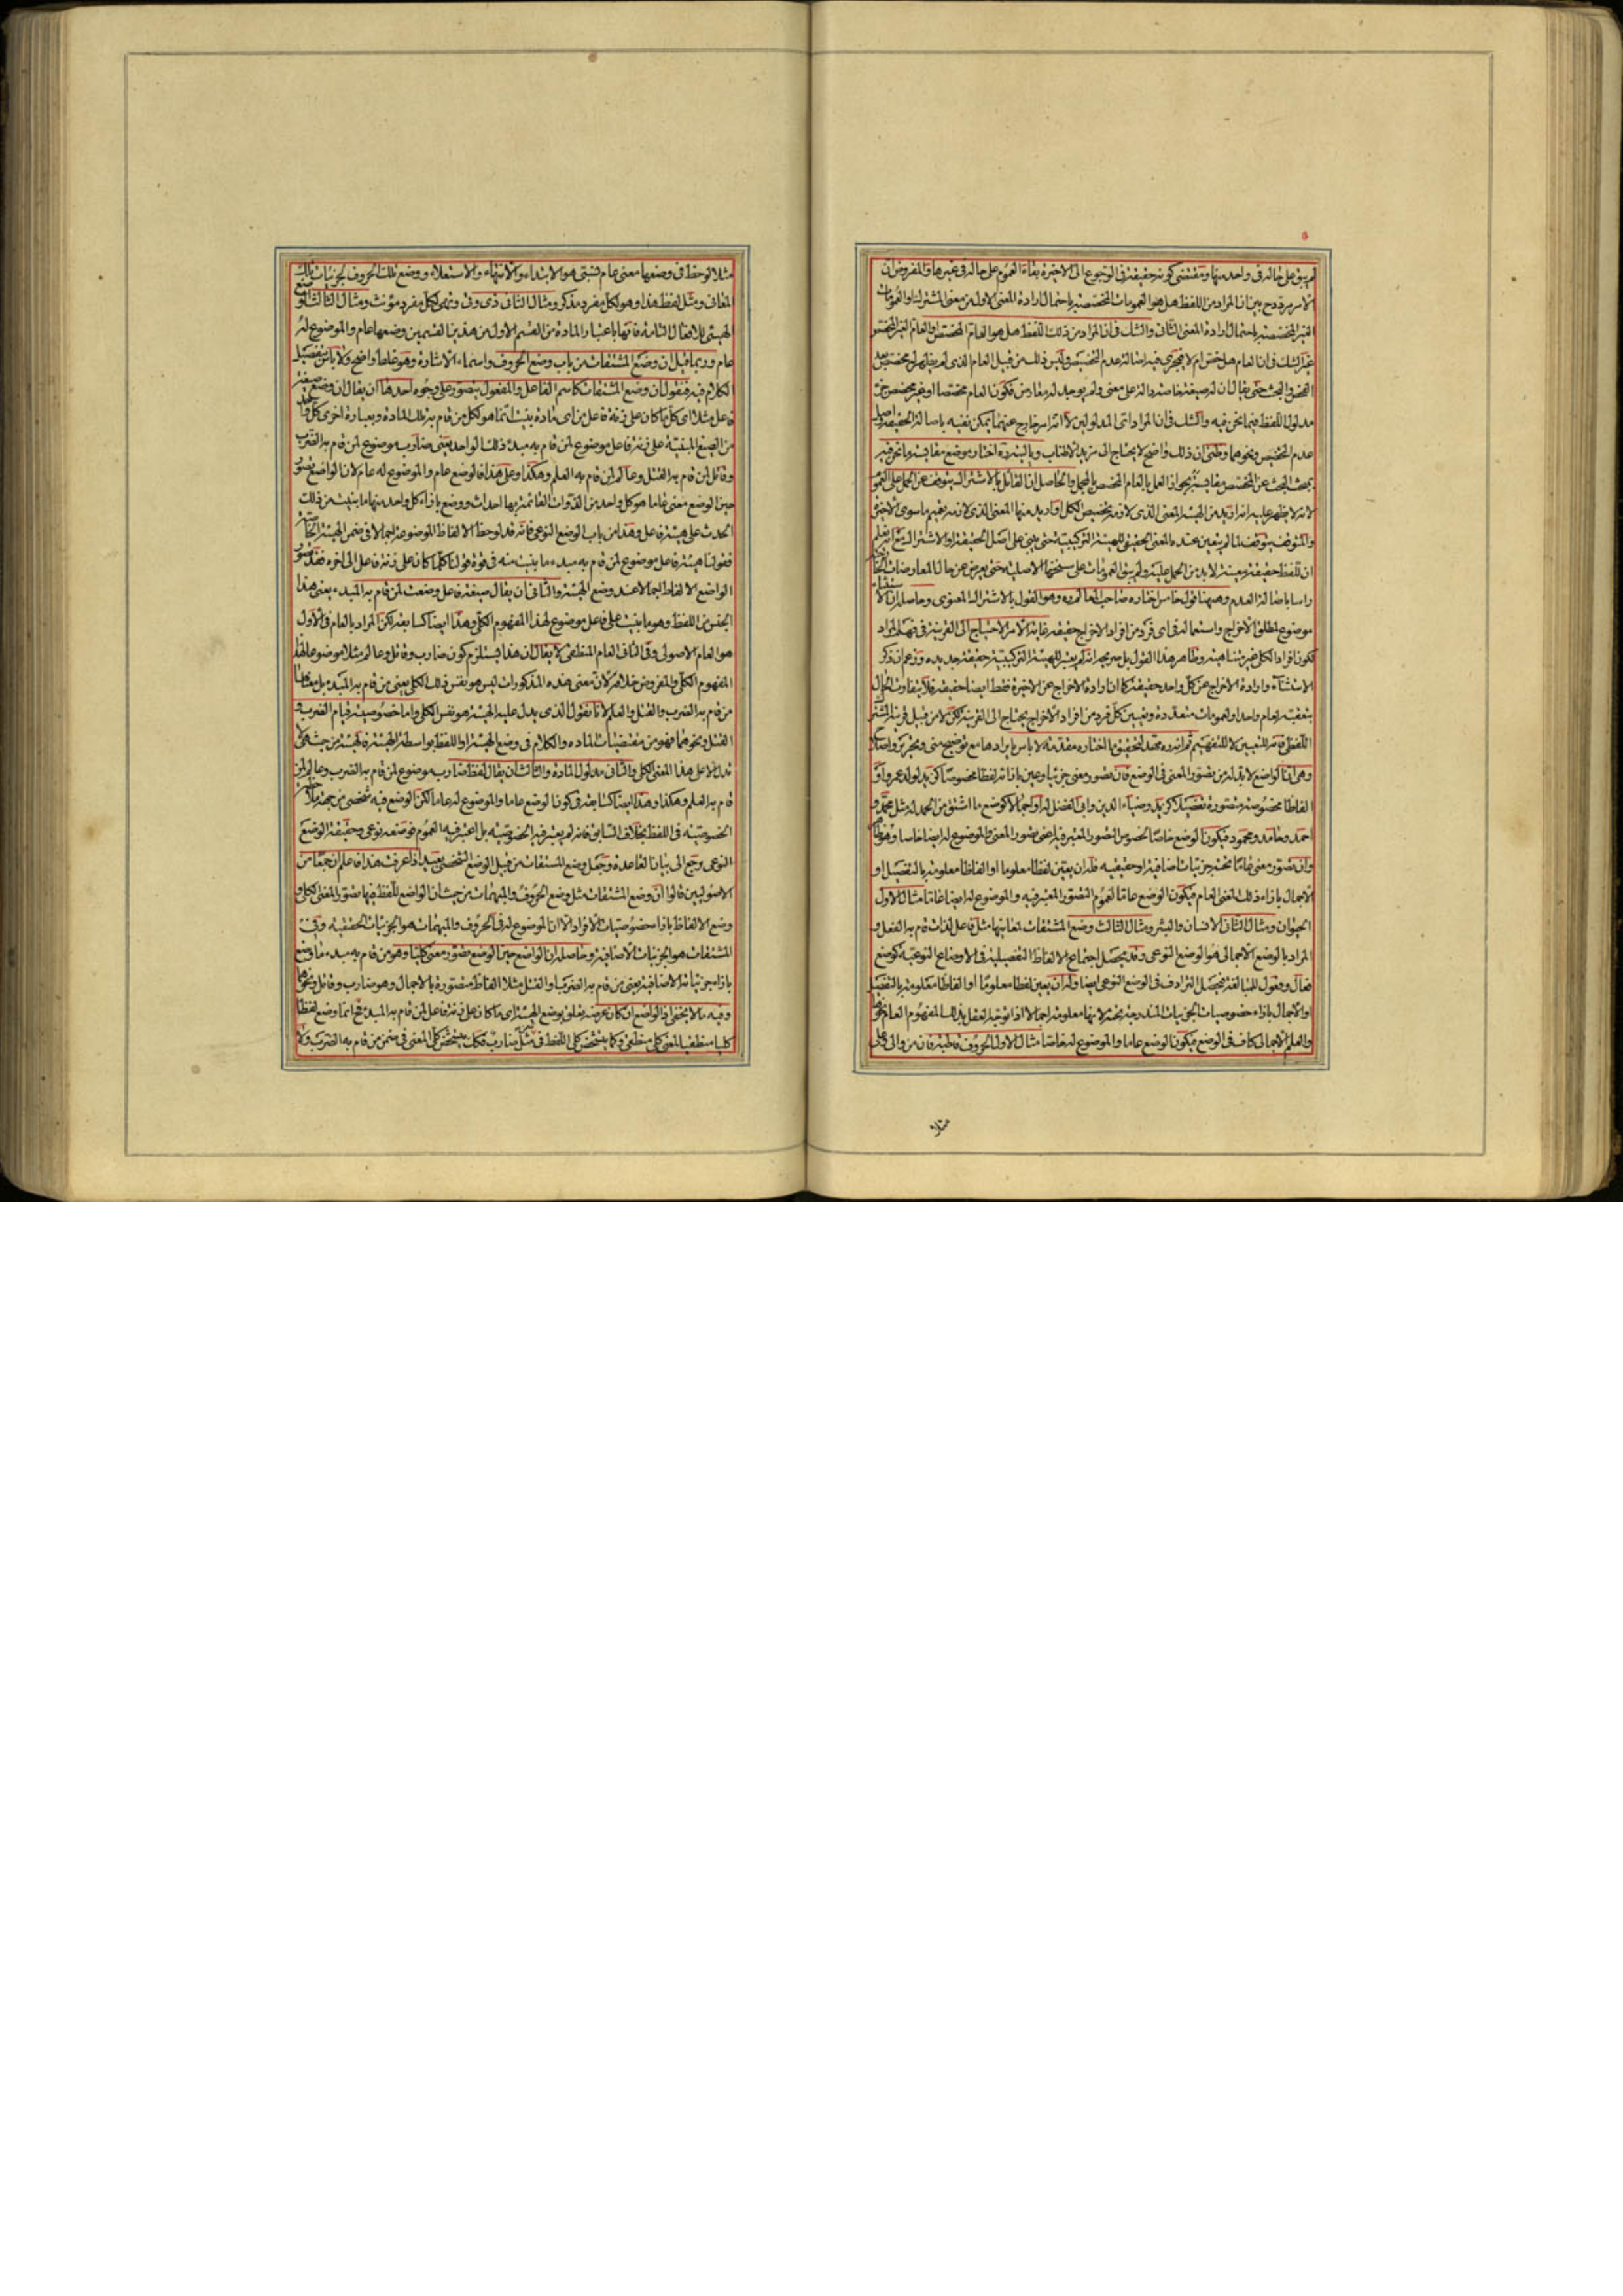 لم يبق على حاله في واحد منها ومقتضى كونه حقيقة في الرجوع الى الاخيرة بقاء العموم على حاله في غيرها والمفروض ان
الامر مردد بين ان المراد من اللفظ هل هو العمومات المخصصة باحتمال ارادة المعنى الاول من معنى المشترك او العمومات
الغير المخصصة باحتمال ارادة المعنى الثاني والشك في ان المراد من ذلك اللفظ هل هو العام المخصص او العام الغير المخصص
غير الشك في ان العام هل خص ام لا فيجري فيه اصالة عدم التخصيص وليس ذلك من قبيل العام الذي لم يظهر له مخصص بعد
الفحص والبحث حتى يقال ان له صيغة خاصة دالة على معنى ولم يوجد له معارض فكون العام مخصصا او غير مخصص جزء
مدلول اللفظ فيما نحن فيه والشك في ان المراد اي المدلولين لا انه امر خارج عنهما يمكن نفيه باصالة الحقيقة واصل
عدم التخصيص ونحوهما وظني ان ذلك واضح لا يحتاج الى مزيد الاطناب وبالسيد ره اختار موضع مقايسة ما نحن فيه
بمبحث البحث عن المخصص مقايسته بجواز العمل بالعام المخصص بالمجمل والحاصل ان القائل بالاشتراك يتوقف عن الحمل على العموم
لانه لا يظهر عليه انه اريد من الهيئة المعنى الذي لازمه تخصيص الكل او اريد منها المعنى الذي لازمه تعميم ما سوى الاخيرة
والمتوقف يتوقف لما لم يتعين عنده المعنى الحقيقي للهيئة التركيبية حتى يبني على اصل الحقيقة او الاشتراك مع انه يعلم
ان للفظ حقيقة معينة لا بد من الحمل عليه ولم يبق العمومات على سنخها الاصلية حتى يعرض عن حال المعارضات
واسا باصالة العدم وههنا قول خامس اختاره صاحب المعالم ره وهو القول بالاشتراك المعنوي وحاصله ان الاستثناء
موضوع لمطلق الاخراج واستعماله في اي فرد من افراد الاخراج حقيقة غاية الامر الاحتياج الى القرينة في فهم المراد
لكون افراد الكلي غير متناهية وظاهر هذا القول بل صريحه انه لم يعتبر للهيئة التركيبية حقيقة جديدة وزعم ان ذكر
الاستثناء وارادة الاخراج عن كل واحد حقيقة كما ان ارادة الاخراج عن الاخيرة فقط ايضا حقيقة فلا يتفاوت الحال
بتعقبه لعام واحد او لعمومات متعددة وتعيين كل فرد من افراد الاخراج يحتاج الى القرينة لكن لا من قبيل قرينة المشترك
اللفظي فانه للتعيين لا للتفهيم ثم انه ره مهد لتحقيق ما اختاره مقدمة لا باس بايرادها مع توضيح مني وتحرير واصلاح
وهي ان الواضع لا بد له من تصور المعنى في الوضع فان تصور معنى جزئيا وعين بازائه لفظا مخصوصا كزيد لولد عمرو او
الفاظا مخصوصة متصورة تفصيلا كزيد وضياء الدين وابي الفضل له او اجمالا كوضع ما اشتق من الحمد له مثل محمد و
احمد وحامد ومحمود فيكون الوضع خاصا لخصوص التصور المعتبر فيه اعني تصور المعنى والموضوع له ايضا خاصا وهو ظاهر
وان تصور معنى عاما تحته جزئيات اضافية او حقيقية فله ان يعين لفظا معلوما او الفاظا معلومة بالتفصيل او
الاجمال بازاء ذلك المعنى العام فيكون الوضع عاما لعموم التصور المعتبر فيه والموضوع له ايضا عاما مثال الاول
الحيوان ومثال الثاني الانسان والبشر ومثال الثالث وضع المشتقات لمعانيها مثل فاعل لذات قام به الفعل و
المراد بالوضع الاجمالي هو الوضع النوعي وقد يحصل اجتماع الالفاظ التفصيلية في الاوضاع النوعية كوضع
فعال وفعول للمبالغة فيحصل الترادف في الوضع النوعي ايضا وله ان يعين لفظا معلوما او الفاظا معلومة بالتفصيل
او الاجمال بازاء خصوصيات الجزئيات المندرجة تحته لانها معلومة اجمالا اذا توجه العقل بذلك المفهوم العام نحوها
والعلم الاجمالي كاف في الوضع فيكون الوضع عاما والموضوع له خاصا مثال الاول الحروف قاطبة فان من والى وعلى
مثلا
مثلا لوحظ في وضعها معنى عام نسبي هو الابتداء والانتهاء والاستعلاء ووضع تلك الحروف لجزئيات تلك
المعاني ومثل لفظ هذا وهو لكل مفرد مذكر ومثال الثاني ذي وتي وتهي لكل مفرد مؤنث ومثال الثالث وضع
الهيئي للافعال التامة فانها باعتبار المادة من القسم الاول من هذين القسمين وضعها عام والموضوع له
عام وربما قيل ان وضع المشتقات من باب وضع الحروف واسماء الاشارة وهو غلط واضح ولا باس بتفصيل
الكلام فيه فنقول ان وضع المشتقات كاسم الفاعل والمفعول يتصور على وجوه احدها ان يقال ان وضع صيغة
فاعل مثلا اي كل ما كان على زنة فاعل من اي مادة بنيت انما هو لكل من قام به تلك المادة وبعبارة اخرى كل واحد
من الصيغ المبنية على زنة فاعل موضوع لمن قام به مبدء ذلك الواحد يعني ضارب موضوع لمن قام به الضرب
وقاتل لمن قام به القتل وعالم لمن قام به العلم وهكذا وعلى هذا فالوضع عام والموضوع له عام لان الواضع تصور
حين الوضع معنى عاما هو كل واحد من الذوات القائمة بها احداث ووضع بازاء كل واحد منها ما بنيت من ذلك
الحدث على هيئة فاعل وهذا من باب الوضع النوعي فانه قد لوحظ الالفاظ الموضوعة اجمالا في ضمن الهيئة الخاصة
فقولنا هيئة فاعل موضوع لمن قام به مبدء ما بنيت منه في قوة قولنا كلما كان على زنة فاعل الى اخره فقد تصور
الواضع الالفاظ اجمالا عند وضع الهيئة والثاني ان يقال صيغة فاعل وضعت لمن قام به المبدء يعني هذا
الجنس من اللفظ وهو ما بنيت على فاعل موضوع لهذا المفهوم الكلي وهذا ايضا كسابقه لكن المراد بالعام في الاول
هو العام الاصولي وفي الثاني العام المنطقي لا يقال ان هذا يستلزم كون ضارب وقاتل وعالم مثلا موضوعا لهذا
المفهوم الكلي والمفروض خلافه لان معنى هذه المذكورات ليس هو نفس ذلك الكلي يعني من قام به المبدء بل معناها
من قام به الضرب والقتل والعلم لانا نقول الذي يدل عليه الهيئة هو نفس الكلي واما خصوصية قيام الضرب و
القتل ونحوهما فهو من مقتضيات المادة والكلام في وضع الهيئة او اللفظ بواسطة الهيئة فالهيئة من حيث هي
تدل الا على هذا المعنى الكلي والثاني مدلول المادة والثالث ان يقال لفظ ضارب موضوع لمن قام به الضرب وعالم لمن
قام به العلم وهكذا وهذا ايضا كسابقه في كون الوضع عاما والموضوع له عاما لكن الوضع فيه شخصي من جهة ملاحظة
الخصوصية في اللفظ بخلاف السابق فانه لم يعتبر فيه الخصوصية بل اعتبر فيه العموم فوضعه نوعي وحقيقة الوضع
النوعي يرجع الى بيان القاعدة وجعل وضع المشتقات من قبيل الوضع الشخصي بعيد اذا عرفت هذا فاعلم ان جمعا من
الاصوليين قالوا ان وضع المشتقات مثل وضع الحروف والمبهمات من حيث ان الواضع للفظ فيها تصور المعنى الكلي و
وضع الالفاظ بازاء خصوصيات الافراد الا ان الموضوع له في الحروف والمبهمات هو الجزئيات الحقيقية وفي
المشتقات هو الجزئيات الاضافية وحاصله ان الواضع حين الوضع تصور معنى كليا وهو من قام به مبدء ما ووضع
بازاء جزئياته الاضافية يعني من قام به الضرب او القتل مثلا الفاظا متصورة بالاجمال وهو ضارب وقاتل ونحوهما
وفيه ما لا يخفى اذ الواضع ان كان غرضه تعلق بوضع الهيئة اي ما كان على زنة فاعل لمن قام به المبدء فح انما وضع لفظا
كليا منطقيا لمعنى كلي منطقي وكما يتشخص كلي اللفظ في مثل ضارب فكك يتشخص كلي المعنى في ضمن من قام به الضرب ولا